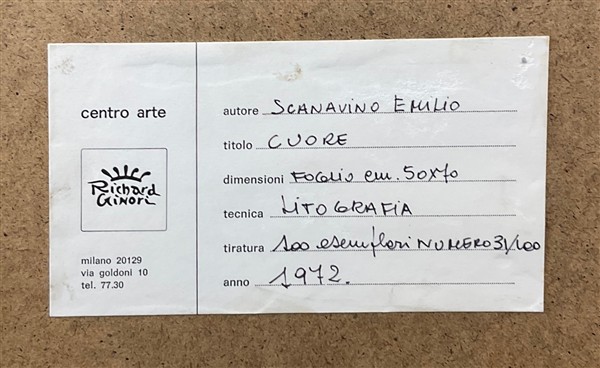 centro arte
Richard
Ginori
milano 20129
via goldoni 10
tel. 77.30
autore SCANAVINO EMILIO
titolo CUORE
dimensioni FOGLIO cm. 50x70
tecnica LITOGRAFIA
tiratura 100 esemplari NUMERO 31/100
anno 1972.